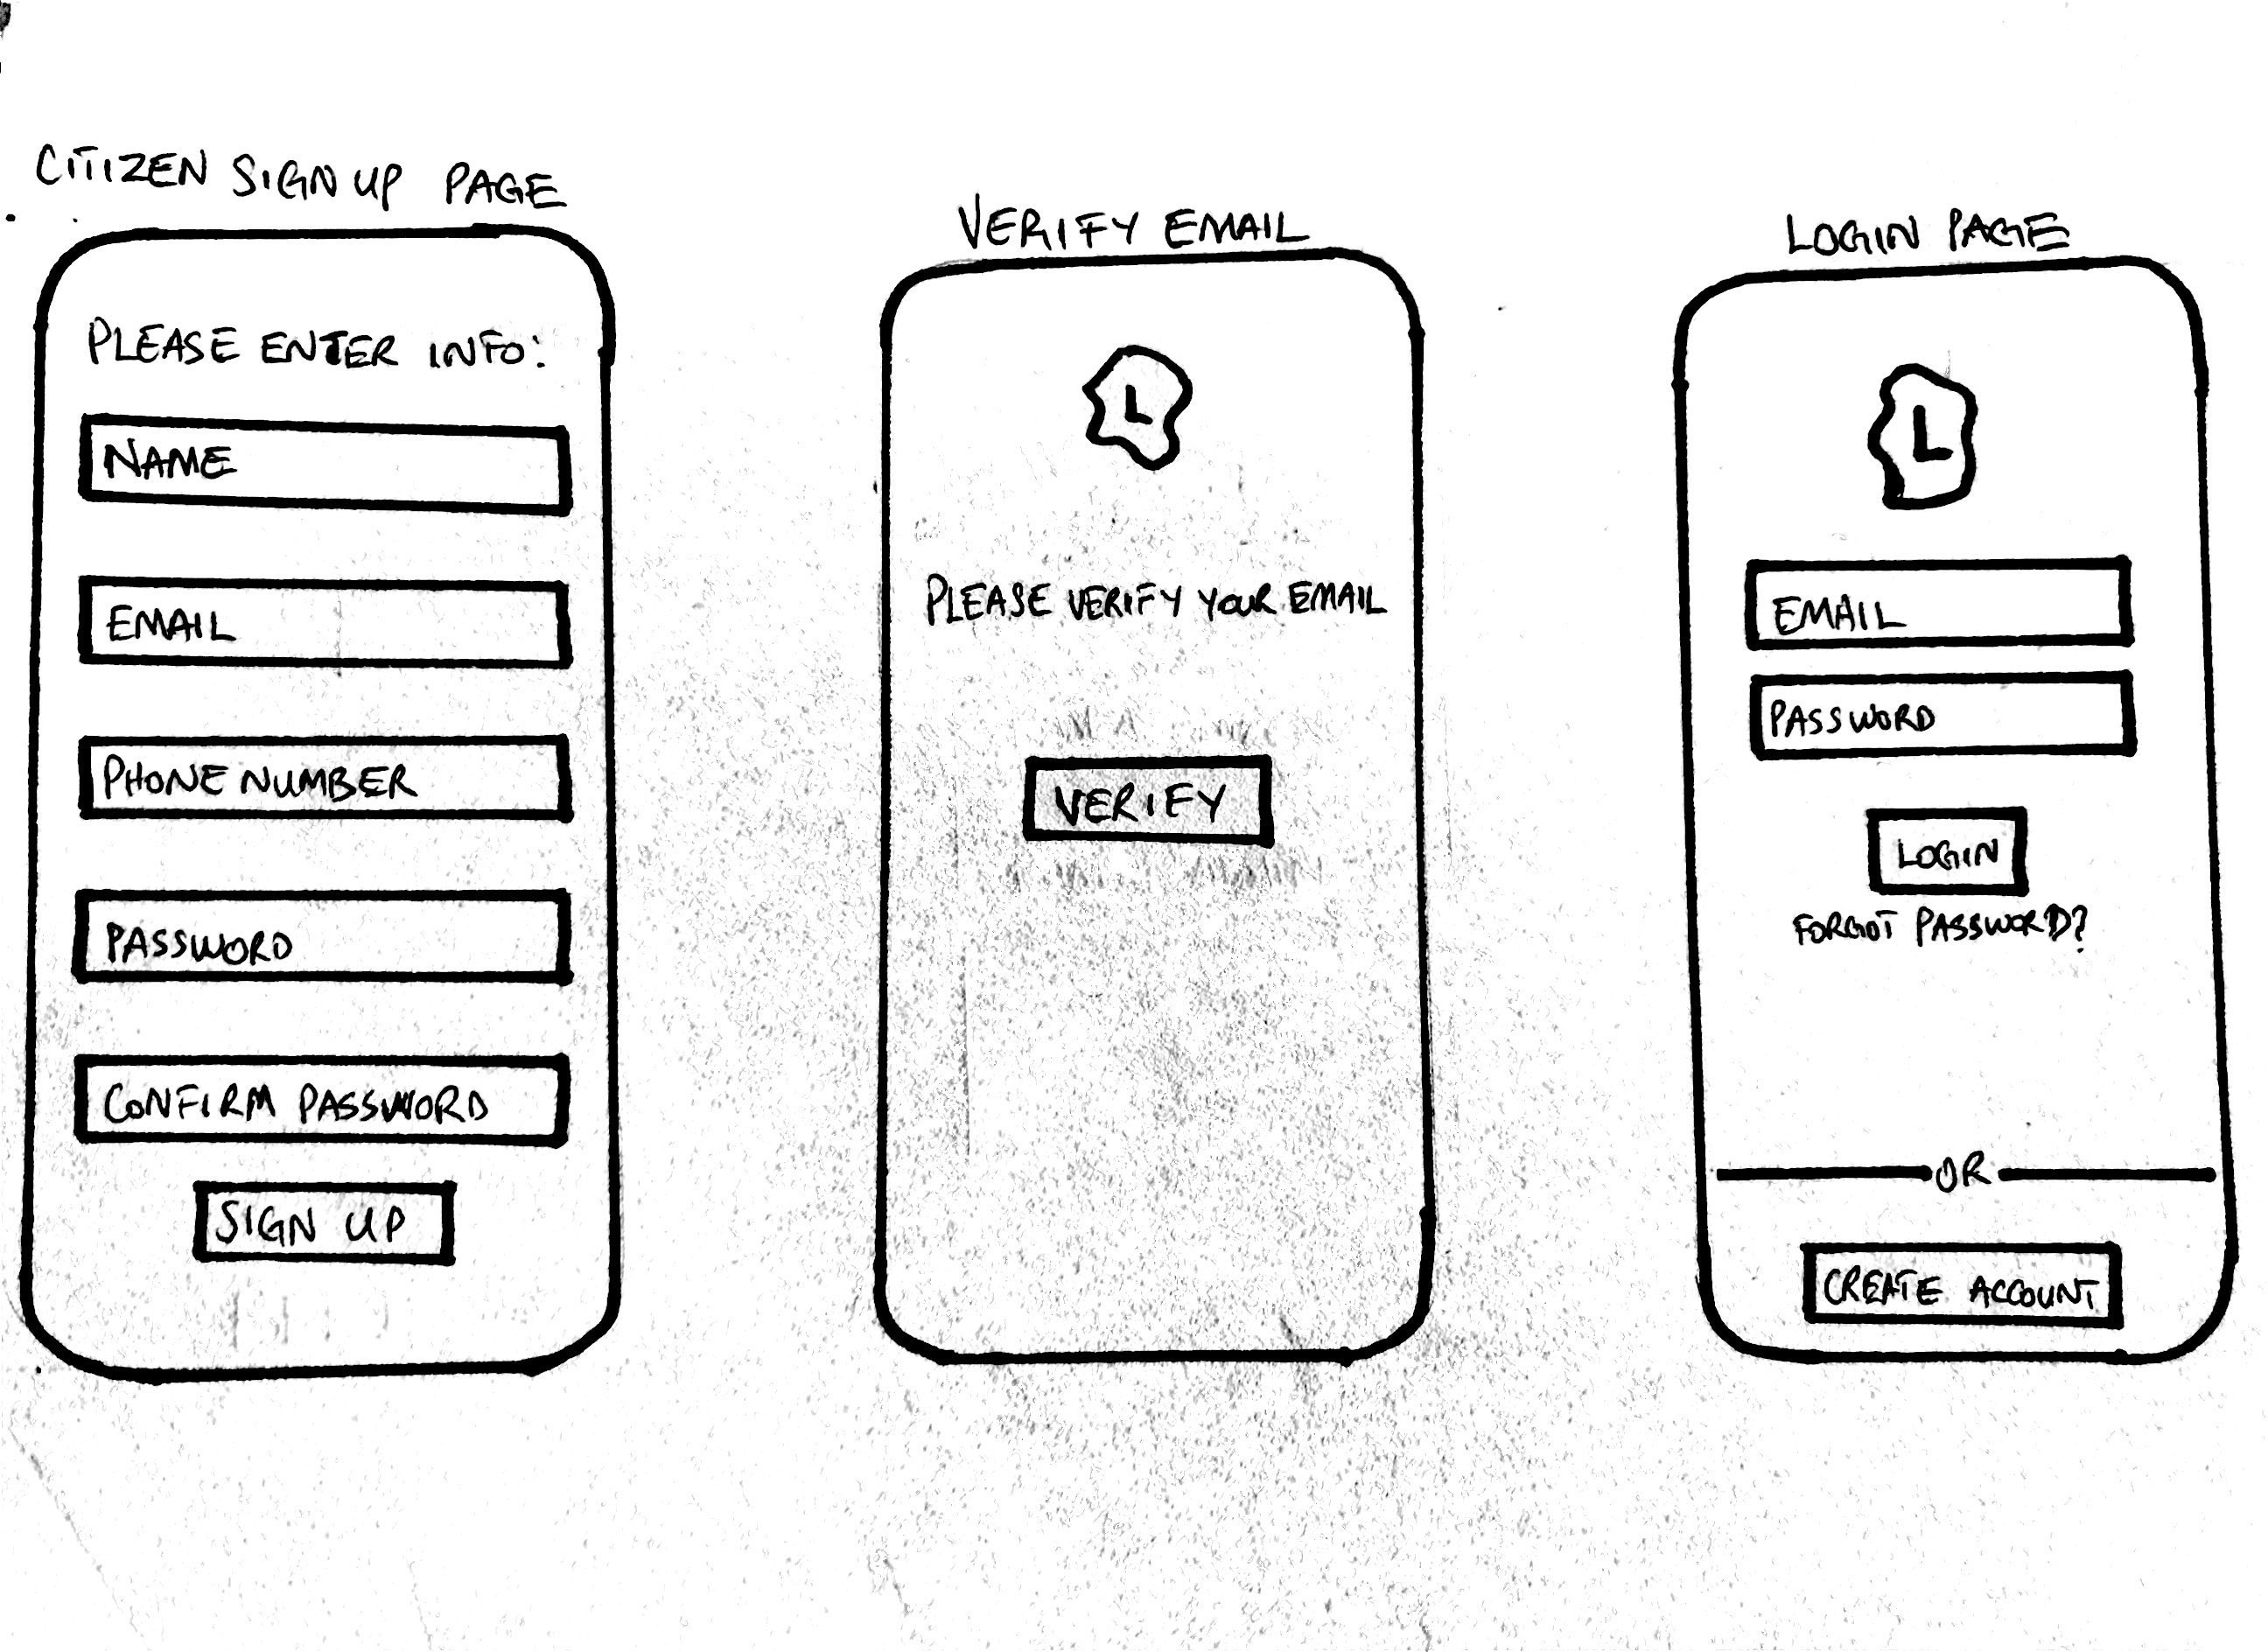 CITIZEN SIGN UP PAGE
PLEASE ENTER INFO:
NAME
EMAIL
PHONE NUMBER
PASSWORD
CONFIRM PASSWORD
SIGN UP
VERIFY EMAIL
L
PLEASE VERIFY YOUR EMAIL
VERIFY
LOGIN PAGE
L
EMAIL
PASSWORD
LOGIN
FORGOT PASSWORD?
OR
CREATE ACCOUNT